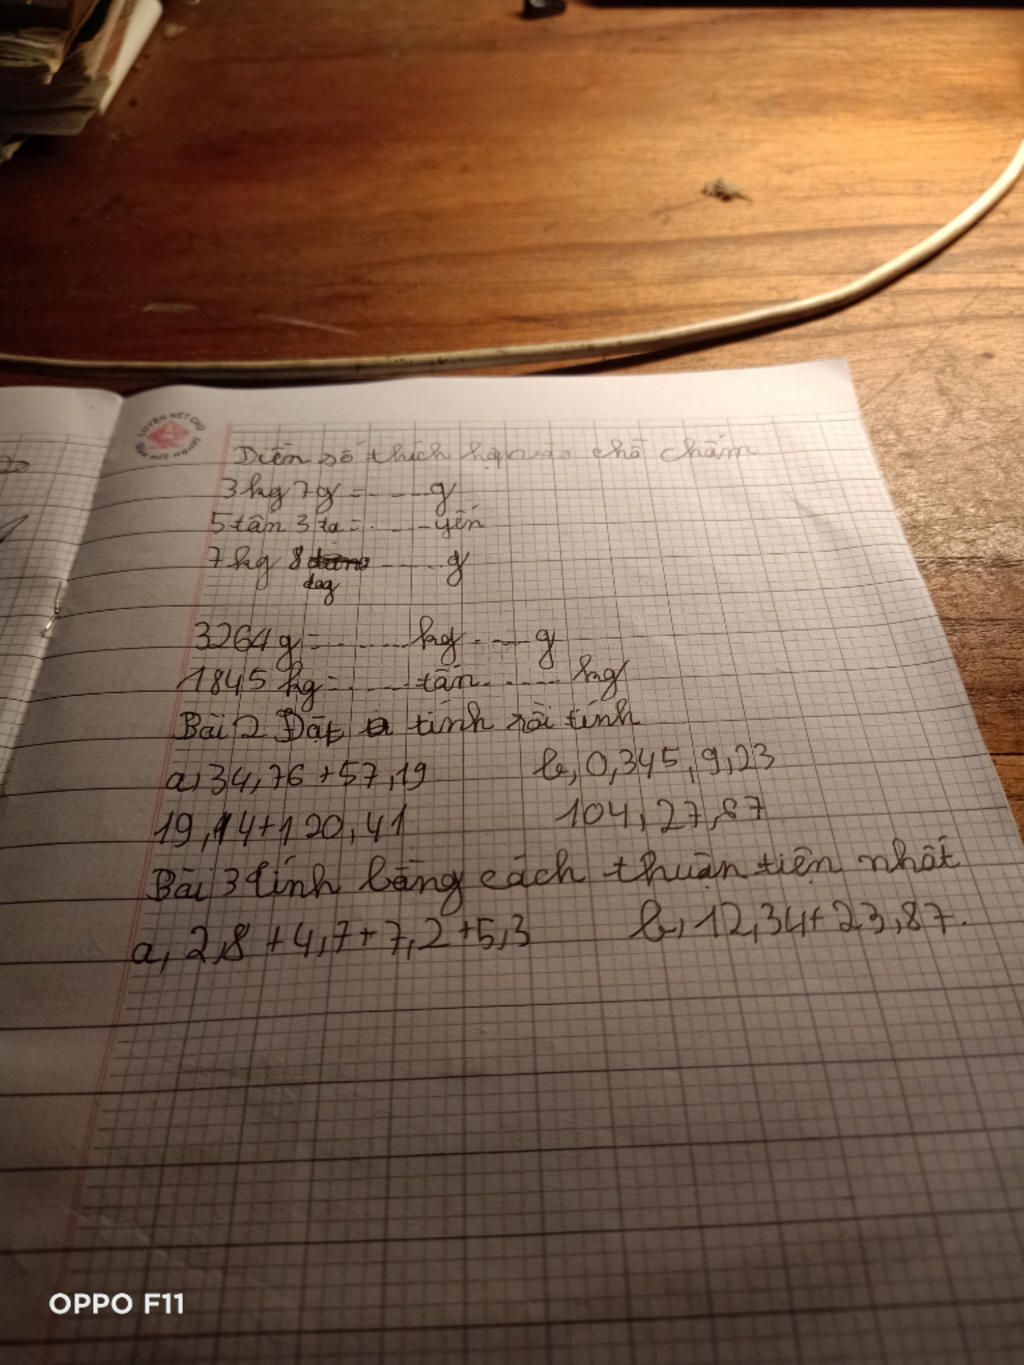 LUYỆN NÉT CHỮ
RÈN NẾT NGƯỜI
Điền số thích hợp vào chỗ chấm
3kg 7g = ...... g
5 tấn 3 tạ = ...... yến
7kg 8 dag ...... g
3264 g = ....... kg ..... g
1845 kg = ..... tấn ...... kg
Bài 2 Đặt tính rồi tính
a, 34,76 + 57,19 b, 0,345, 9,23
19,14 + 120,41 104, 27,87
Bài 3 tính bằng cách thuận tiện nhất
a, 2,8 + 4,7 + 7,2 + 5,3 b, 12,34 + 23,87.
OPPO F11